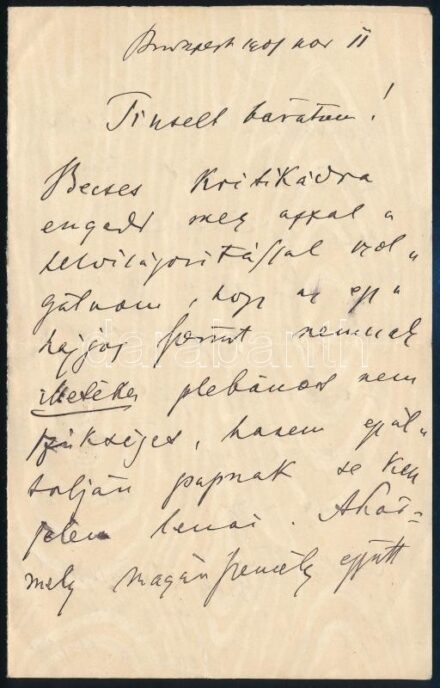 Budapest 1901 nov 11
Tisztelt barátom!
Becses Kritikádra
engedd meg azzal a
felvilágosítással szol„
gálnom, hogy az egy„
házjog szerint nemcsak
illetékes plebános nem
szükséges, hanem egyál„
talján papnak se kell
jelen lenni. Akár=
mely magán személy együtt
darabanth